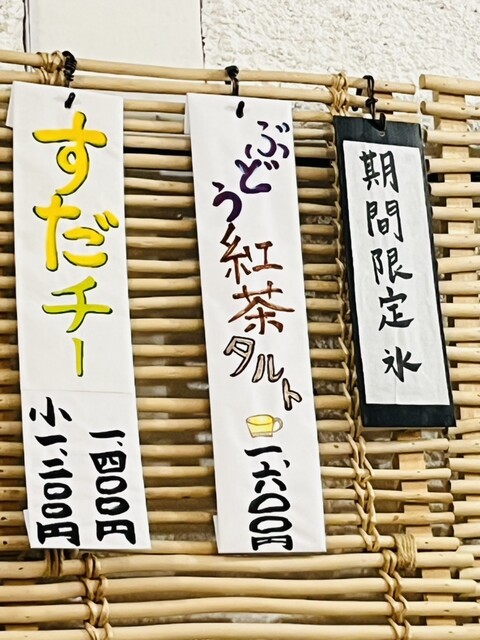 期間限定氷
ぶどう紅茶タルト
一、六〇〇円
すだチー
一、四〇〇円
小一、二〇〇円